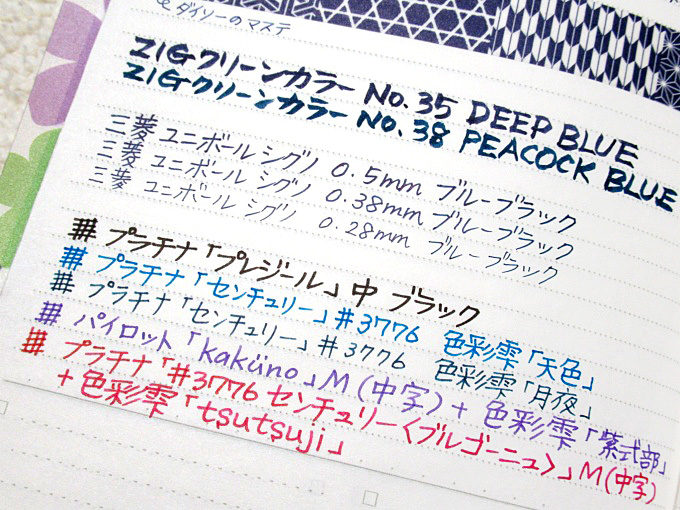 & ダイソーのマステ
ZIGクリーンカラー No.35 DEEP BLUE
ZIGクリーンカラー No.38 PEACOCK BLUE
三菱 ユニボール シグノ 0.5mm ブルーブラック
三菱 ユニボール シグノ 0.38mm ブルーブラック
三菱 ユニボール シグノ 0.28mm ブルーブラック
プラチナ「プレジール」中 ブラック
プラチナ「センチュリー」#3776 色彩雫「天色」
プラチナ「センチュリー」#3776 色彩雫「月夜」
パイロット「kaküno」M(中字)+色彩雫「紫式部」
プラチナ「#3776 センチュリー〈ブルゴーニュ〉」M(中字)
+色彩雫「tsutsuji」